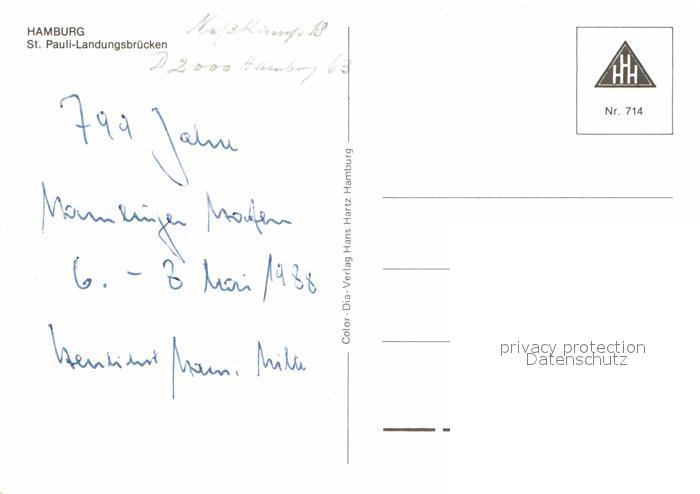 HAMBURG
St. Pauli-Landungsbrücken
Nußkamp 18
D 2000 Hamburg 63
799 Jahre
Hamburger Hafen
6. - 8 Mai 1988
Color-Dia-Verlag Hans Hartz Hamburg
HHH
Nr. 714
privacy protection
Datenschutz